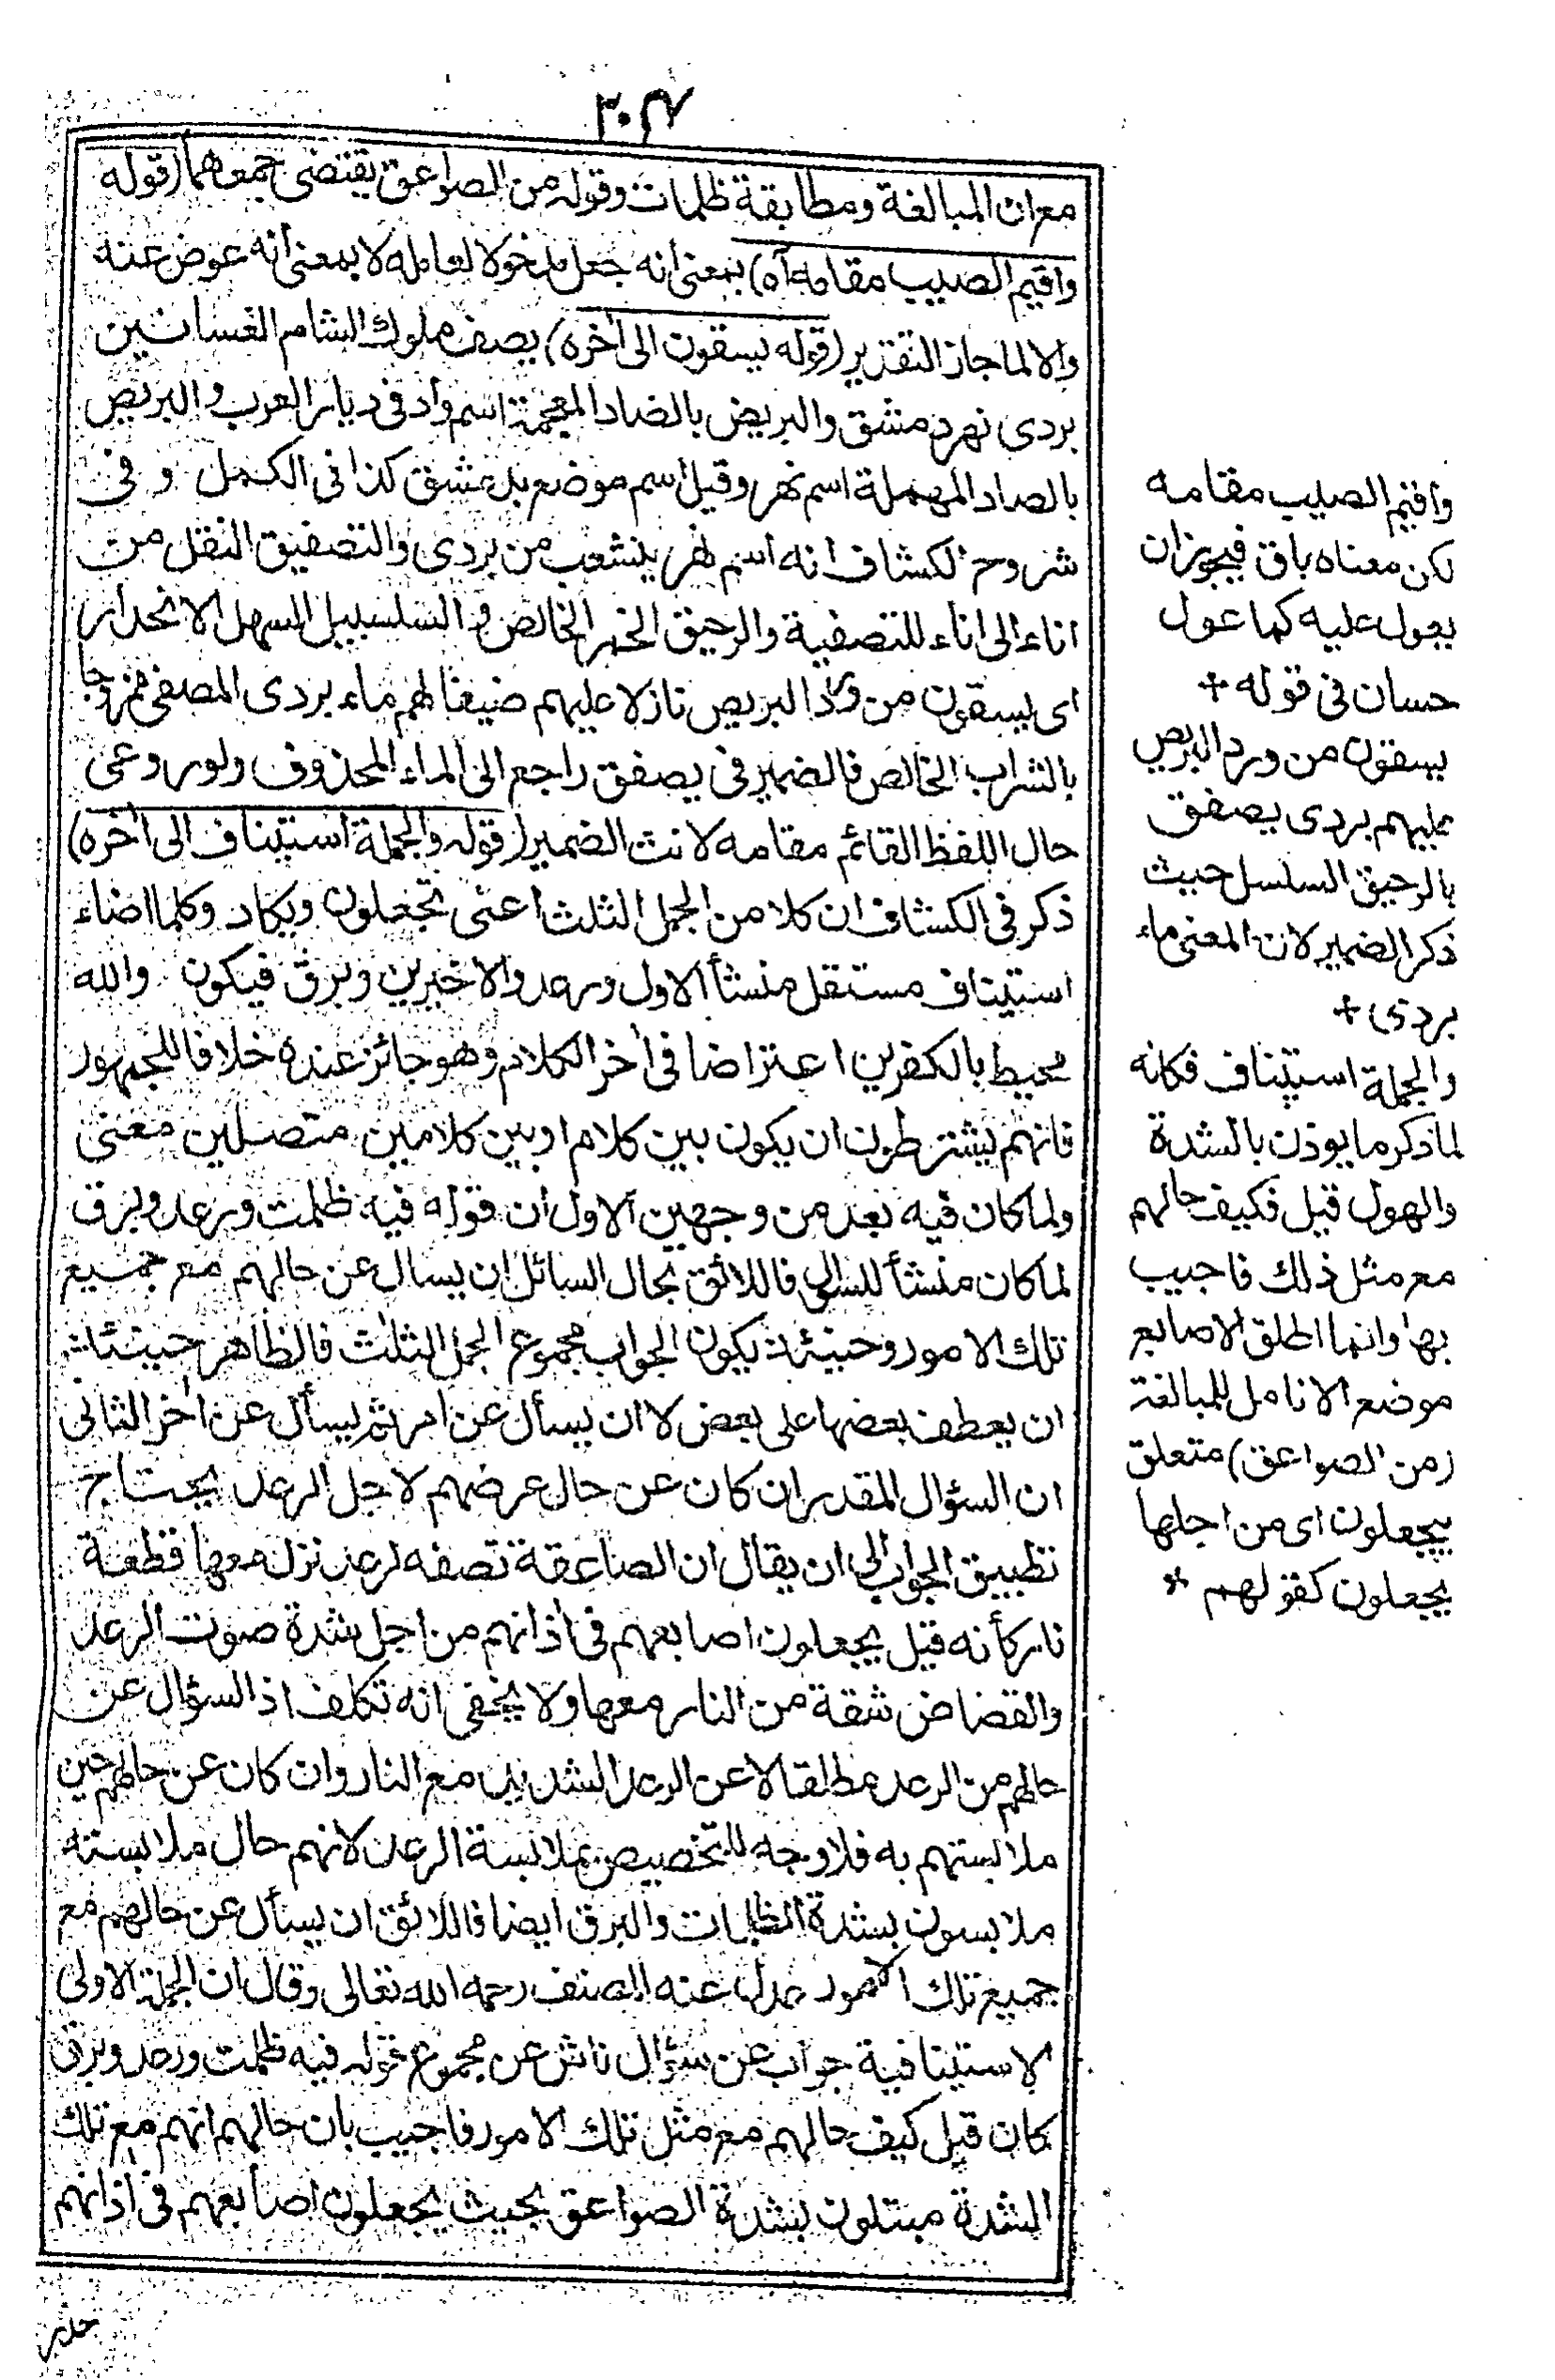 ٣٠٧
مع ان المبالغة ومطابقة ظلمات وقوله من الصواعق يقتضى جمعهما (قوله
واقيم الصيب مقامه آه) بمعنى انه جعل مدخولا لعامله لا بمعنى أنه عوض عنه
والا لما جاز التقدير (قوله يسقون الى أخره) يصف ملوك الشام الغسانين
بردى نهر دمشق والبريض بالضاد المعجمة اسم واد فى ديار العرب والبريص
بالصاد المهملة اسم نهر وقيل اسم موضع بدمشق كذا فى الكمل وفى
شروح الكشاف انه اسم نهر ينشعب من بردى والتصفيق النقل من
اناء الى اناء للتصفية والرحيق الخمر الخالص والسلسبيل السهل الانحدار
اى يسقون من ورد البريص نازلا عليهم ضيفا لهم ماء بردى المصفى ممزوجا
بالشراب الخالص فالضمير فى يصفق راجع الى الماء المحذوف ولو روعى
حال اللفظ القائم مقامه لانث الضمير (قوله والجملة استيناف الى أخره)
ذكر فى الكشاف ان كلا من الجمل الثلث اعنى يجعلون ويكاد وكلما اضاء
استيناف مستقل منشأ الاول ورعد والاخيرين وبرق فيكون والله
محيط بالكفرين اعتراضا فى أخر الكلام وهو جائز عنده خلافا للجمهور
فانهم يشترطون ان يكون بين كلام او بين كلامين متصلين معنى
ولما كان فيه بعد من وجهين الاول أن قوله فيه ظلمت ورعد وبرق
لما كان منشأ للسؤال فاللائق بحال السائل ان يسال عن حالهم مع جميع
تلك الامور وحينئذ يكون الجواب مجموع الجمل الثلث فالظاهر حينئذ
ان يعطف بعضها على بعض لا ان يسأل عن امر ثم يسأل عن أخر الثانى
ان السؤال المقدر ان كان عن حال عرضهم لاجل الرعد يحتاج
تطبيق الجواب الى ان يقال ان الصاعقة تصفه لرعد نزل معها قطعة
نار كأنه قيل يجعلون اصابعهم فى أذانهم من اجل شدة صوت الرعد
والقضاض شقة من النار معها ولا يخفى انه تكلف اذ السؤال عن
حالهم من الرعد مطلقا لا عن الرعد الشديد مع النار وان كان عن حالهم حين
ملابستهم به فلا وجه للتخصيص بملابسة الرعد لانهم حال ملابسته
ملابسون بشدة الظلمات والبرق ايضا فاللائق ان يسأل عن حالهم مع
جميع تلك الامور عدل عنه المصنف رحمه الله تعالى وقال ان الجملة الاولى
الاستينافية جواب عن سؤال ناش عن مجموع قوله فيه ظلمت ورعد وبرق
كان قيل كيف حالهم مع مثل تلك الامور فاجيب بان حالهم انهم مع تلك
الشدة مبتلون بشدة الصواعق بحيث يجعلون اصابعهم فى أذانهم
واقيم الصيب مقامه
لكن معناه باق فيجوز ان
يعول عليه كما عول
حسان فى قوله +
يسقون من ورد البريص
عليهم بردى يصفق
بالرحيق السلسل حيث
ذكر الضمير لان المعنى ماء
بردى +
والجملة استيناف فكانه
لما ذكر ما يوذن بالشدة
والهول قيل فكيف حالهم
مع مثل ذلك فاجيب
بها وانما اطلق الاصابع
موضع الانامل للمبالغة
(من الصواعق) متعلق
بيجعلون اى من اجلها
يجعلون كقولهم *